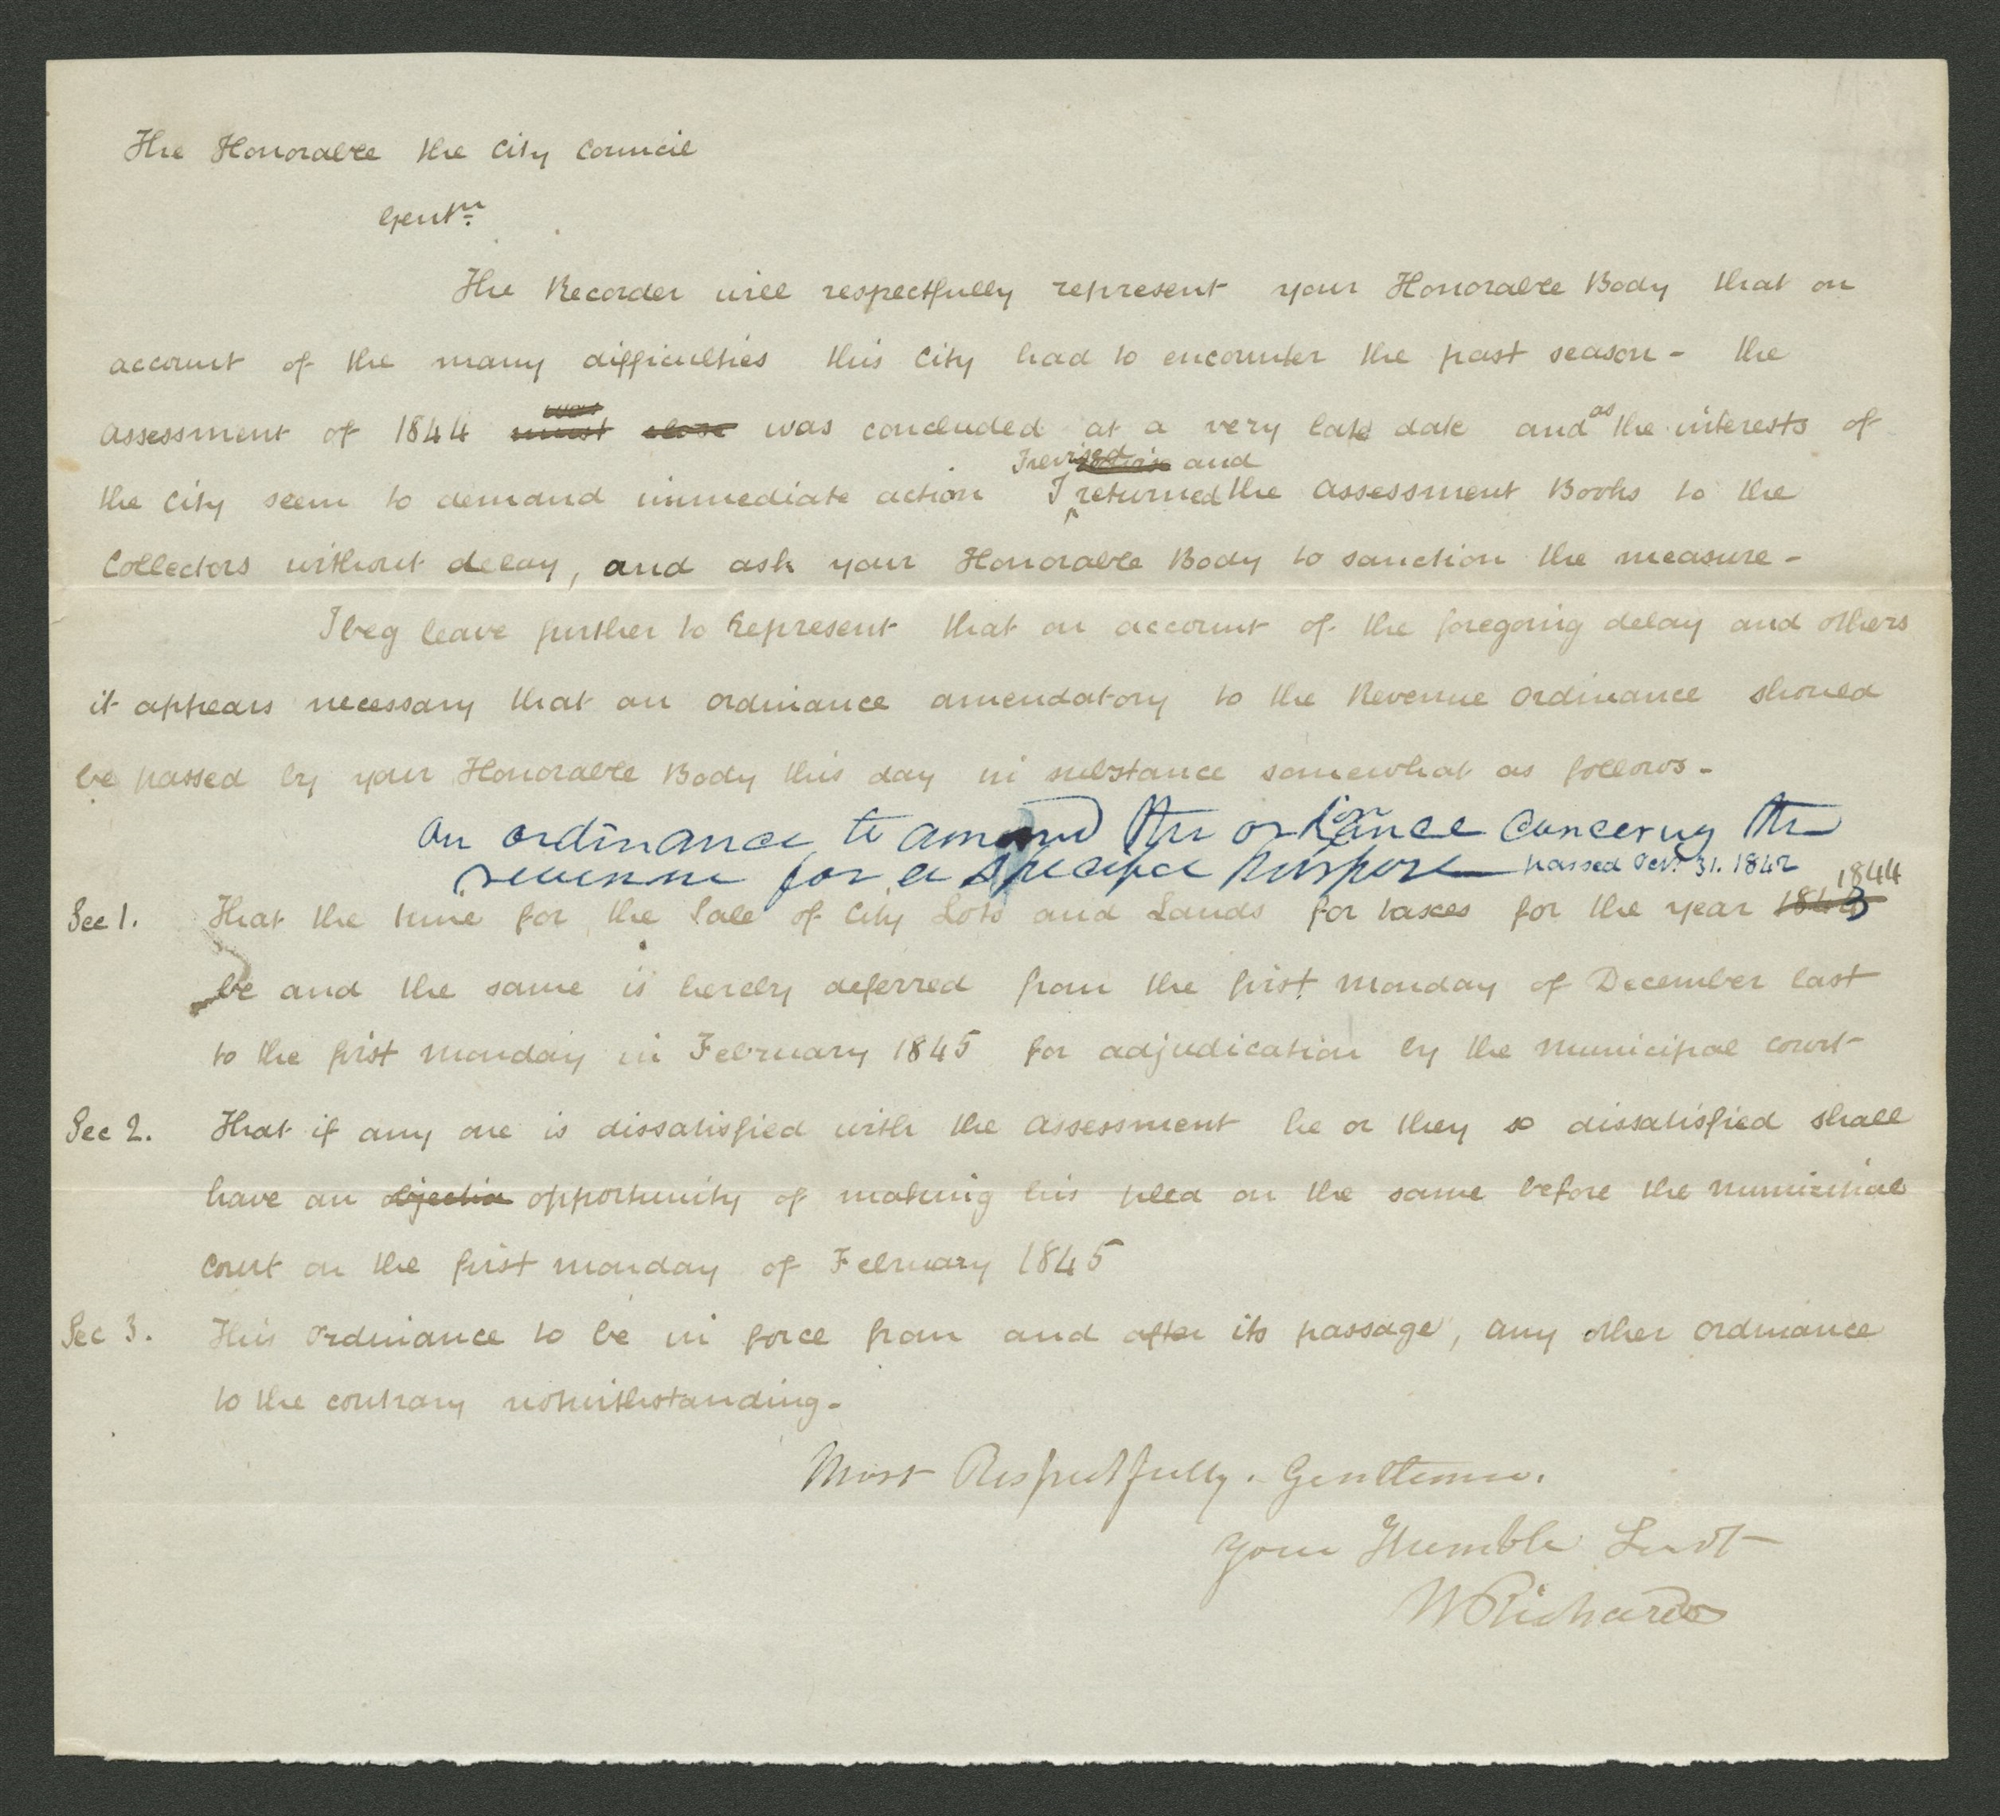 The Honorable the City Council
Gentn
The Recorder will respectfully represent your Honorable Body that on
account of the many difficulties this City had to encounter the past season - the
was
assessment of 1844 must close was concluded at a very late date and as the interests of
I revised and
the City seem to demand immediate action I returned the assessment Books to the
Collectors without delay, and ask your Honorable Body to sanction the measure -
I beg leave further to Represent that on account of the foregoing delay and others
it appears necessary that an ordinance amendatory to the Revenue Ordinance should
be passed by your Honorable Body this day in substance somewhat as follows -
An ordinance to amend the ordinance concerng the
revenue for a specifice purpose passed Oct. 31. 1842
1844
Sec 1. That the time for the Sale of City Lots and Lands for taxes for the year 1843
be and the same is hereby deferred from the first Monday of December last
to the first Monday in February 1845 for adjudication by the Municipal court
Sec 2. That if any one is dissatisfied with the assessment he or they so dissatisfied shall
have an objection opportunity of making his plea on the same before the Municipal
Court on the first Monday of February 1845
Sec 3. This Ordinance to be in force from and after its passage, any other ordinance
to the contrary notwithstanding -
Most Respectfully. Gentlemen.
Your Humble Servt
W Richards